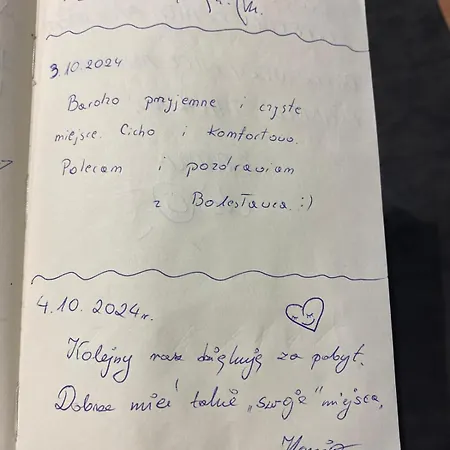 3.10.2024
Bardzo przyjemne i czyste
miejsce. Cicho i komfortowo.
Polecam i pozdrawiam
z Bolesławca :)
4.10.2024r.
Kolejny raz dziękuję za pobyt.
Dobrze mieć takie „swoje” miejsca,